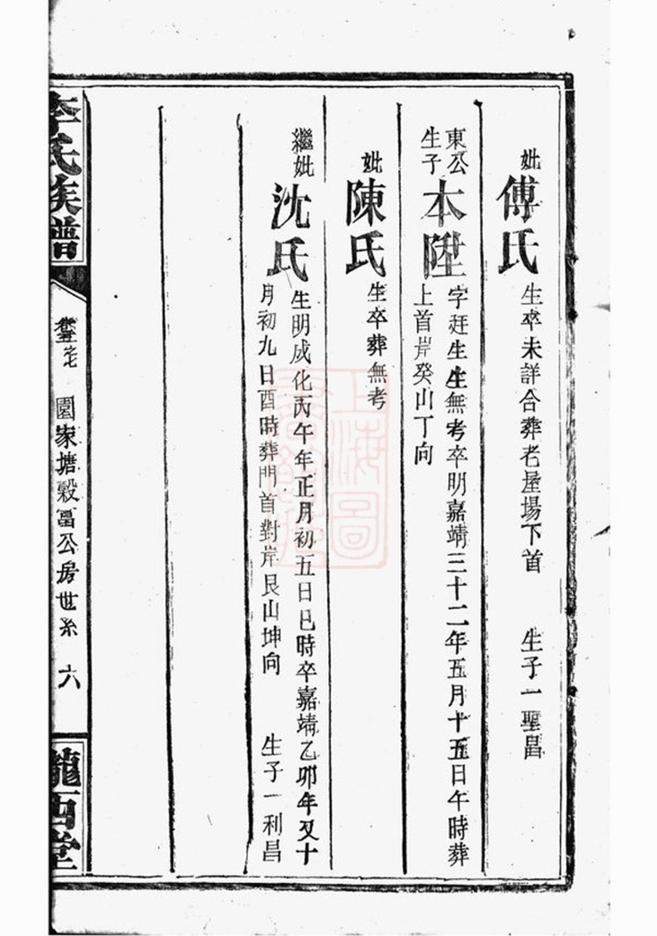 妣
傅氏
生卒未詳合葬老屋場下首　生子一聖昌
東公
生子
本陞
字廷生生無考卒明嘉靖三十二年五月十五日午時葬
上首岸癸山丁向
妣
陳氏
生卒葬無考
繼妣
沈氏
生明成化丙午年正月初五日巳時卒嘉靖乙卯年又十
月初九日酉時葬門首對岸艮山坤向　生子一利昌
李氏族譜
園家塘穀冨公房世系　六
隴西堂
上海圖